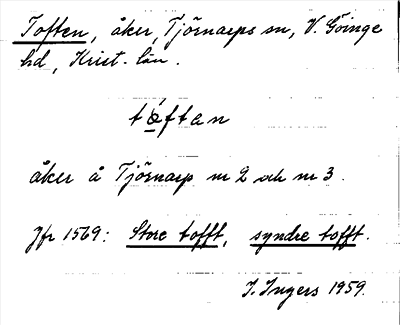 Toften, åker, Tjörnarps sn, V. Göinge
hd, Krist. län.
tåftan
åker å Tjörnarp nr 2 och nr 3.
Jfr 1569: Store tofft, syndre tofft.
I. Ingers 1959.